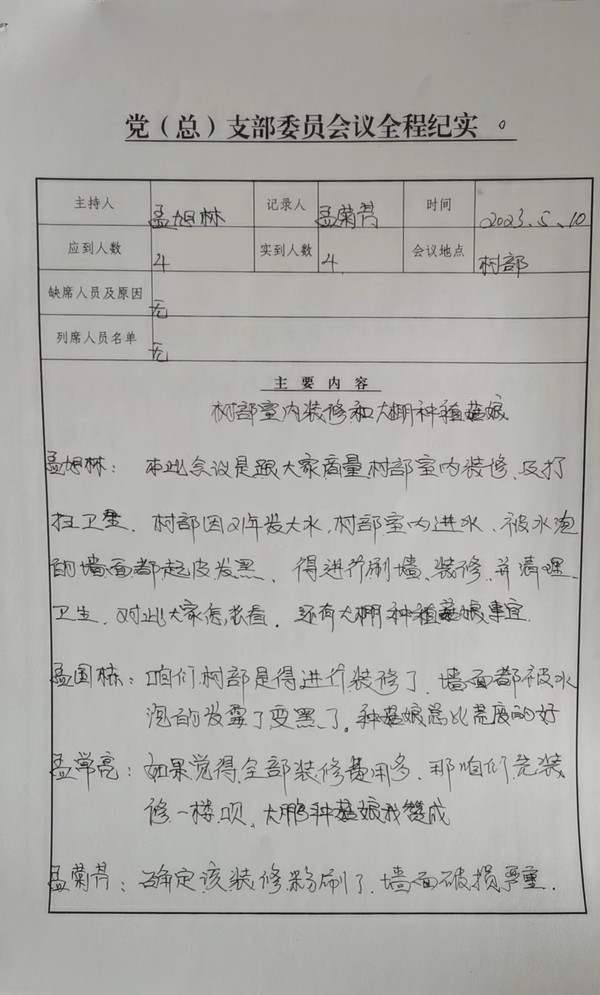 党（总）支部委员会议全程纪实
主持人 孟旭林 记录人 孟菊芳 时间 2023.5.10
应到人数 4 实到人数 4 会议地点 村部
缺席人员及原因 无
列席人员名单 无
主要内容
村部室内装修和大棚种植菇娘
孟旭林：本此会议是跟大家商量，村部室内装修、及打
扫卫生．村部因21年发大水，村部室内进水、被水泡
的墙面都起皮发黑．得进行刷墙、装修、并清理
卫生．对此大家怎么看．还有大棚种植菇娘事宜．
孟国栋：咱们村部是得进行装修了．墙面都被水
泡的发霉了变黑了。种菇娘总比荒废的好
孟常亮：如果觉得全部装修费用多．那咱们先装
修一楼呗．大鹏种菇娘我赞成
孟菊芳：确定该装修粉刷了．墙面破损严重．